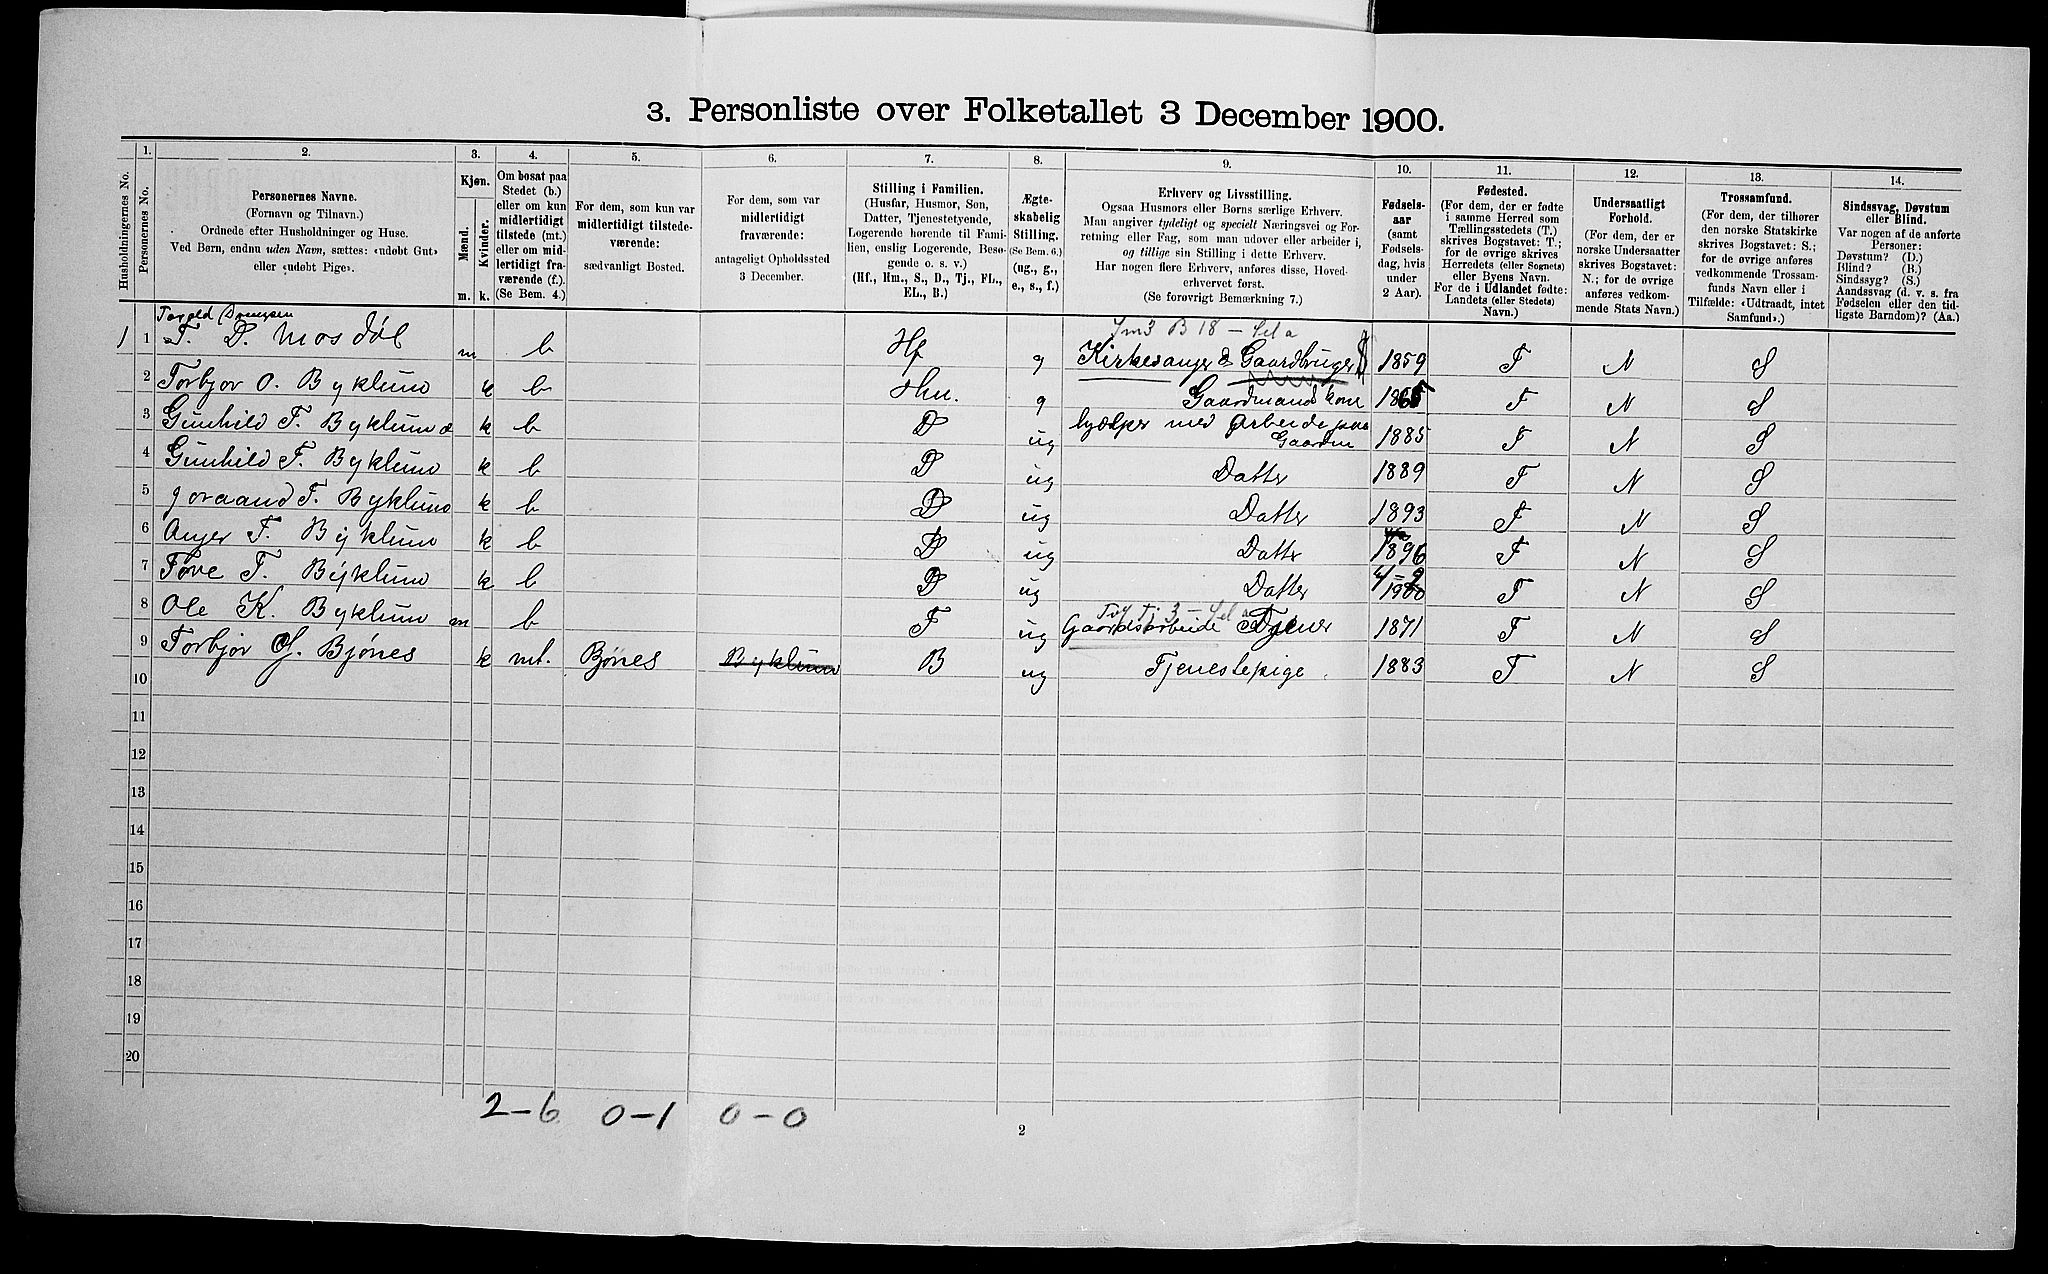 3. Personliste over Folketallet 3 December 1900.
1. 2. 3. 4. 5. 6. 7. 8. 9. 10. 11. 12. 13. 14.
Husholdningernes No.
Personernes No.
Personernes Navne.
(Fornavn og Tilnavn.)
Ordnede efter Husholdninger og Huse.
Ved Børn, endnu uden Navn, sættes: «udøbt Gut»
eller «udøbt Pige».
Kjøn.
Mænd.
Kvinder.
m. k.
Om bosat paa
Stedet (b.)
eller om kun
midlertidigt
tilstede (mt.)
eller om mid-
lertidigt fra-
værende (f.).
(Se Bem. 4.)
For dem, som kun var
midlertidigt tilstede-
værende:
sædvanligt Bosted.
For dem, som var
midlertidigt
fraværende:
antageligt Opholdssted
3 December.
Stilling i Familien.
(Husfar, Husmor, Søn,
Datter, Tjenestetyende,
Logerende hørende til Fami-
lien, enslig Logerende, Besø-
gende o. s. v.)
(Hf., Hm., S., D., Tj., FL.,
EL., B.)
Ægte-
skabelig
Stilling.
(Se Bem. 6.)
(ug., g.,
e., s., f.)
Erhverv og Livsstilling.
Ogsaa Husmors eller Børns særlige Erhverv.
Man angiver tydeligt og specielt Næringsvei og For-
retning eller Fag, som man udover eller arbeider i,
og tillige sin Stilling i dette Erhverv.
Har nogen flere Erhverv, anføres disse, Hoved-
erhvervet først.
(Se forøvrigt Bemærkning 7.)
Fødsels-
aar
(samt
Fødsels-
dag, hvis
under
2 Aar).
Fødested.
(For dem, der er fødte
i samme Herred som
Tællingsstedets (T.)
skrives Bogstavet: T.;
for de øvrige skrives
Herredets (eller Sognets)
eller Byens Navn.
For de i Udlandet fødte:
Landets (eller Stedets)
Navn.)
Undersaatligt
Forhold.
(For dem, der er
norske Undersaatter
skrives Bogstavet:
N.; for de øvrige
anføres vedkom-
mende Stats Navn.)
Trossamfund.
(For dem, der tilhører
den norske Statskirke
skrives Bogstavet: S.;
for de øvrige anføres
vedkommende Trossam-
funds Navn eller i
Tilfælde: «Udtraadt, intet
Samfund».)
Sindssvag, Døvstum
eller Blind.
Var nogen af de anførte
Personer:
Døvstum? (D.)
Blind? (B.)
Sindssyg? (S.)
Aandssvag (d. v. s. fra
Fødselen eller den tid-
ligste Barndom)? (Aa.)
1 1 T. D. Mosdøl m b Hf g Kirkesanger & Gaardbruger 1859 T N S
2 Torbjor O. Byklum k b Hm. g Gaardmands kone 1865 T N S
3 Gunhild T. Byklum k b D ug hjælper med Arbeide paa Gaarden 1885 T N S
4 Gunhild T. Byklum k b D ug Datter 1889 T N S
5 Joraand T. Byklum k b D ug Datter 1893 T N S
6 T. Byklum k b D ug Datter 1896 T N S
7 Tove T. Byklum k b D ug Datter 1900 T N S
8 Ole K. Byklum m b ug Gaardsarbeide Tjener 1871 T N S
9 Torbjor Bjønes k mt. Bjønes Byklum B ug Tjenestepige 1883 T N S
10
11
12
13
14
15
16
17
18
19
20
2-6 0-1 0-0
2